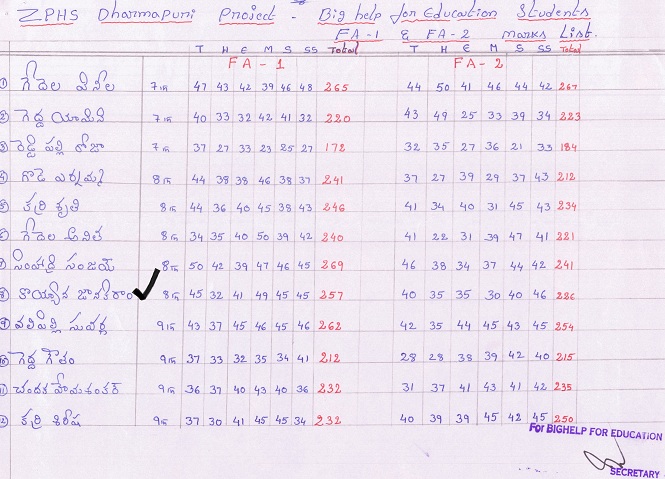 ZPHS Dharmapuri Project - Big help for Education Students
FA-1 & FA-2 marks List.
T H E M S SS Total T H E M S SS Total
FA-1 FA-2
① గేదెల వినీల 7th 47 43 42 39 46 48 265 44 50 41 46 44 42 267
② గెద్ద యామిని 7th 40 33 32 42 41 32 220 43 49 25 33 39 34 223
③ రెడ్డి పల్లి రోజా 7th 37 27 33 23 25 27 172 32 35 27 36 21 33 184
④ గొడె 8th 44 38 38 46 38 37 241 37 27 39 29 37 43 212
⑤ కర్రి శృతి 8th 44 36 40 45 38 43 246 41 34 40 31 45 43 234
⑥ గేదెల అనిత 8th 34 35 40 50 39 42 240 41 22 31 39 47 41 221
⑦ సింహాద్రి సంజయ్ 8th 50 42 39 47 46 45 269 46 38 34 37 44 42 241
⑧ జానకిరాం 8th 45 32 41 49 45 45 257 40 35 35 30 40 46 226
⑨ సువర్ణ 9th 43 37 45 46 45 46 262 42 35 44 45 43 45 254
⑩ గెద్ద గౌతం 9th 37 33 32 35 34 41 212 28 28 38 39 42 40 215
⑪ చందక హేమశంకర్ 9th 36 37 40 43 40 36 232 31 37 41 43 41 42 235
⑫ కర్రి శిరీష 9th 37 30 41 45 45 34 232 40 39 39 45 42 45 250
For BIGHELP FOR EDUCATION
SECRETARY